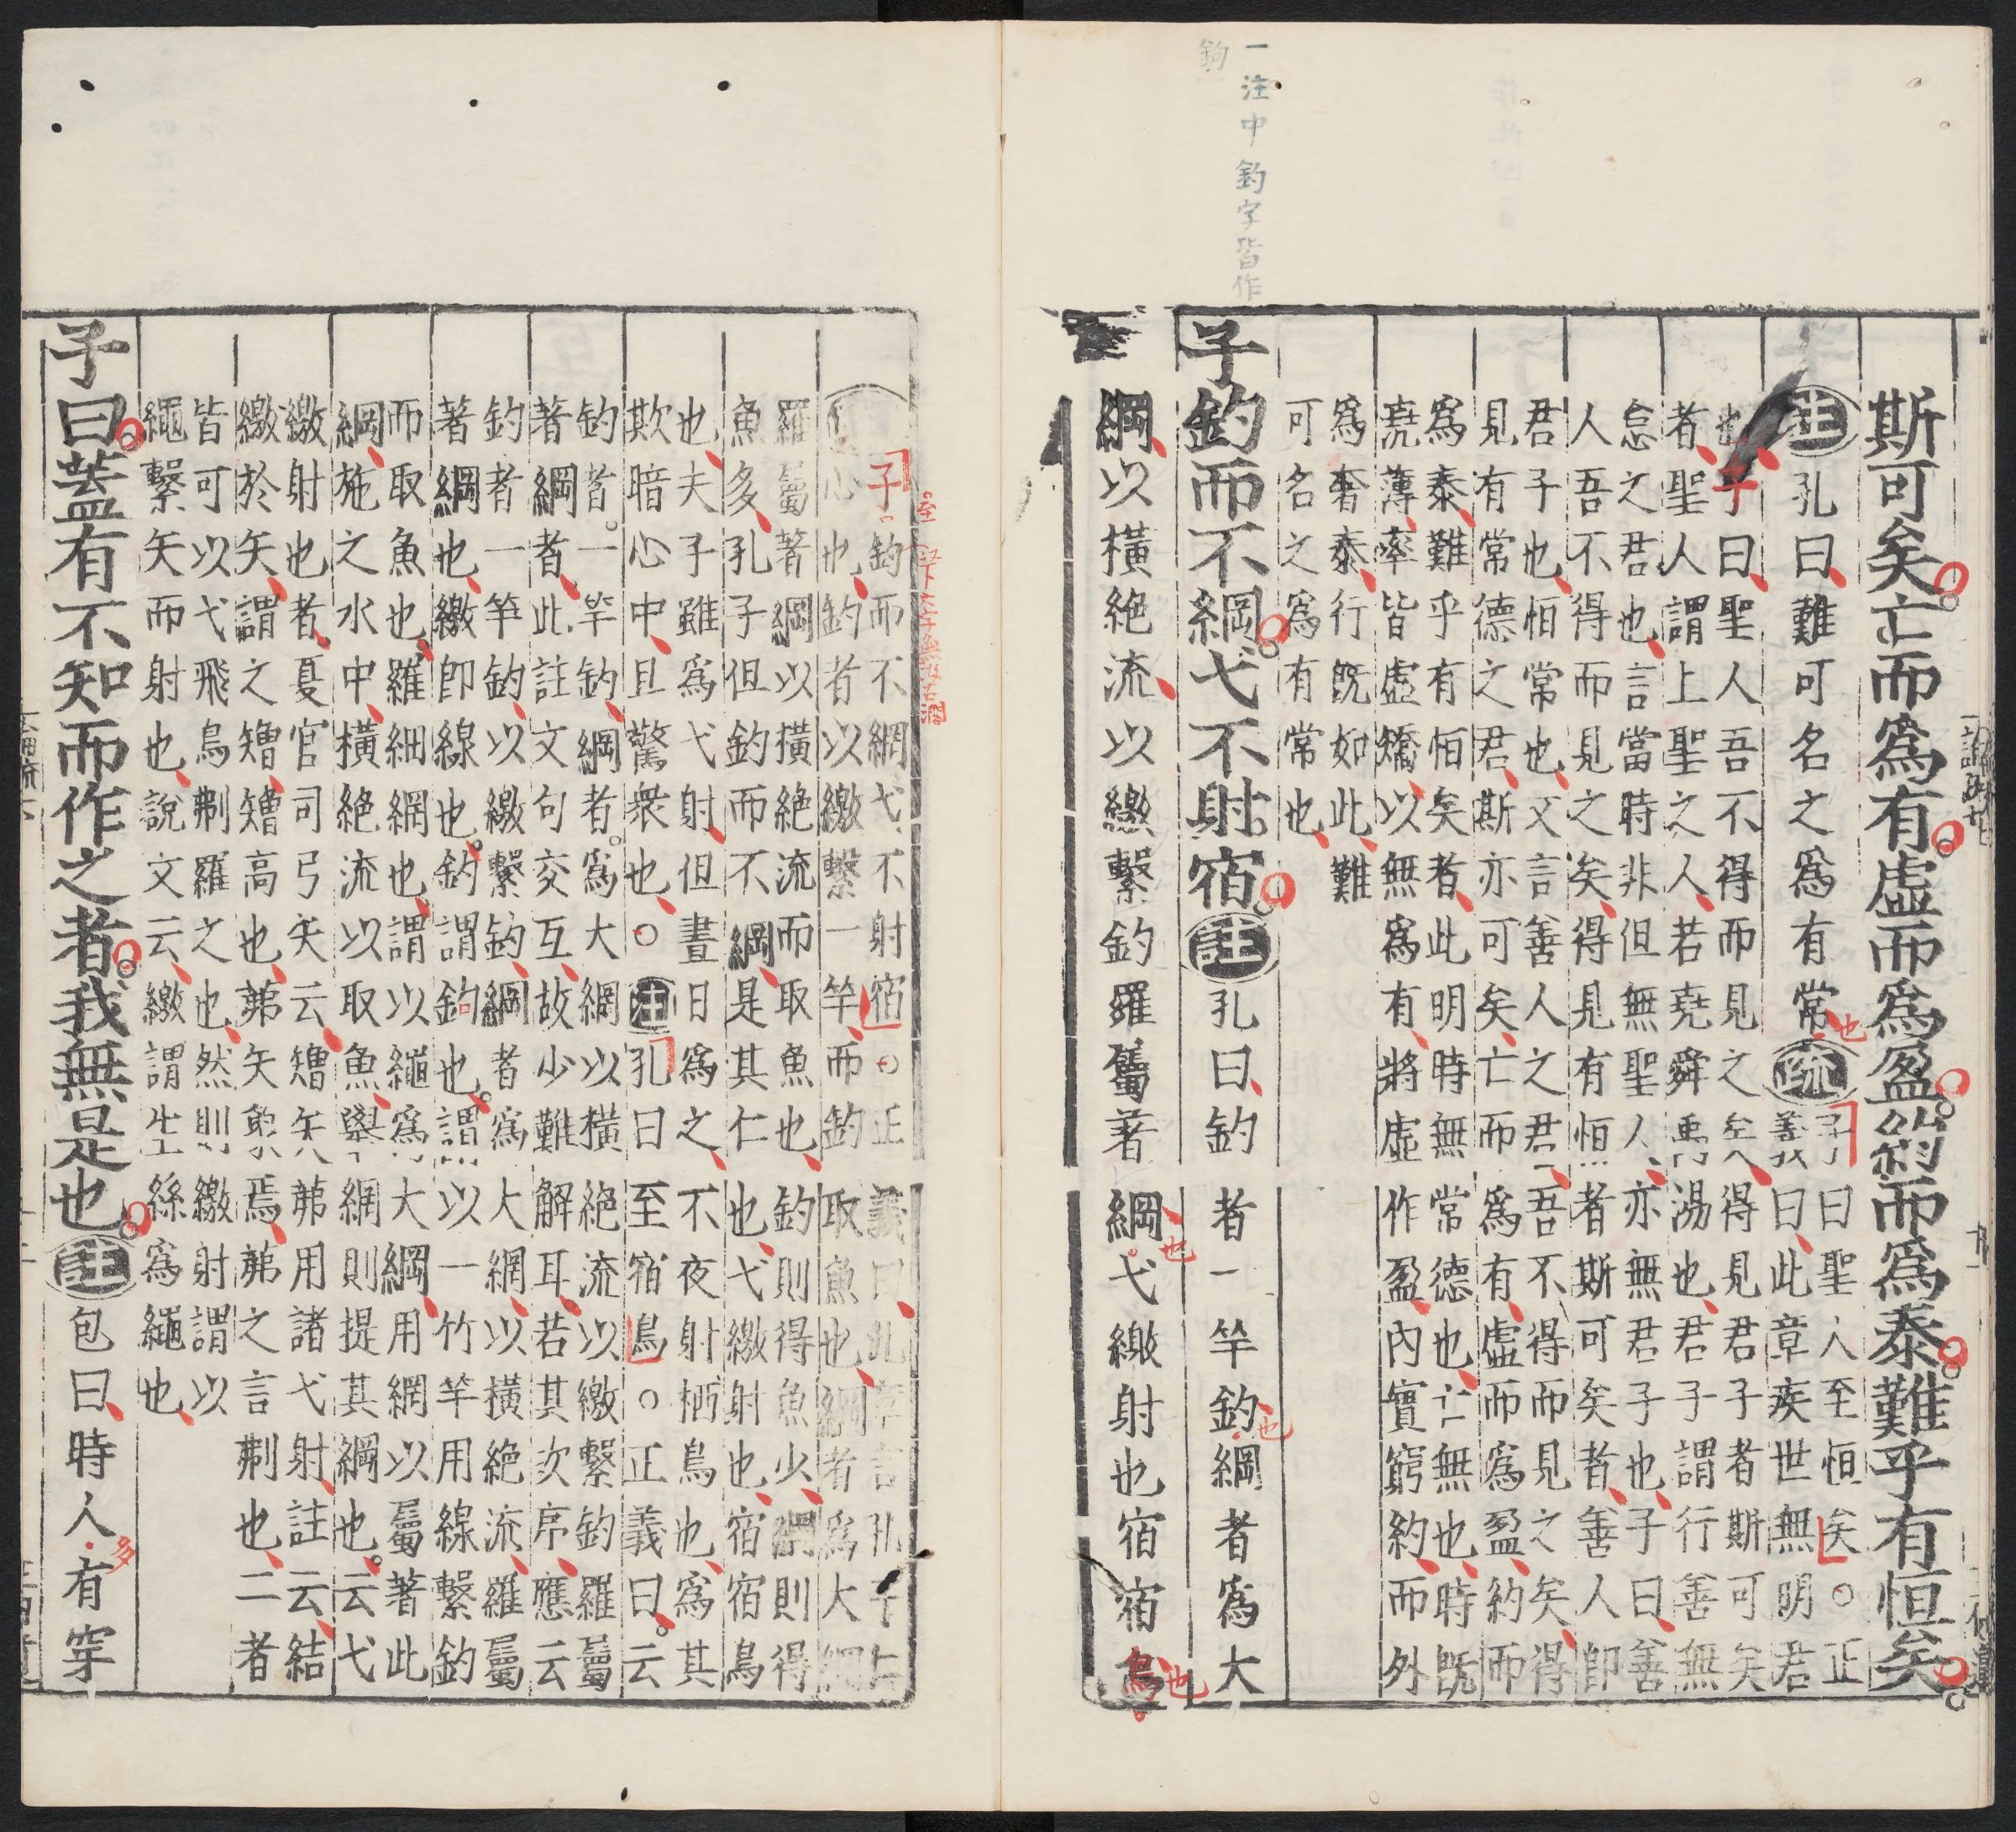 斯可矣亡而為有虛而為盈約而為泰難乎有恒矣
註孔曰難可名之為有常也疏子曰聖人至恒矣○正
義曰此章疾世無明君
也子曰聖人吾不得而見之矣得見君子者斯可矣
者聖人謂上聖之人若堯舜禹湯也君子謂行善無
怠之君也言當時非但無聖人亦無君子也子曰善
人吾不得而見之矣得見有恒者斯可矣者善人即
君子也恒常也又言善人之君吾不得而見之矣得
見有常德之君斯亦可矣亡而為有虛而為盈約而
為泰難乎有恒矣者此明時無常德也亡無也時既
堯薄率皆虛矯以無為有將虛作盈內實窮約而外
為奢泰行既如此難
可名之為有常也
子釣而不綱弋不射宿註孔曰釣者一竿釣也綱者為大
綱以橫絕流以繳繫釣羅屬著綱也弋繳射也宿宿鳥也
一注中釣字皆作
鉤
子釣而不綱弋不射宿○正義曰此章言孔子仁
心也釣者以繳繫一竿而釣取魚也綱者為大綱
羅屬著綱以橫絕流而取魚也釣則得魚少綱則得
魚多孔子但釣而不綱是其仁也弋繳射也宿宿鳥
也夫子雖為弋射但晝日為之不夜射栖鳥也為其
欺暗心中且驚衆也○註孔曰至宿鳥○正義曰云
釣者一竿釣綱者為大綱以橫絕流以繳繫釣羅屬
著綱者此註文句交互故少難解耳若其次序應云
釣者一竿釣以繳繫釣綱者為大網以橫絕流羅屬
著綱也繳即線也釣謂鉤也謂以一竹竿用線繫釣
而取魚也羅細網也謂以繩為大綱用網以屬著此
綱施之水中橫絕流以取魚舉網則提其綱也云弋
繳射也者夏官司弓矢云矰矢茀用諸弋射註云結
繳於矢謂之矰矰高也茀矢象焉茀之言刜也二者
皆可以弋飛鳥刜羅之也然則繳射謂以
繩繫矢而射也說文云繳謂生絲為繩也
子曰蓋有不知而作之者我無是也註包曰時人多有穿